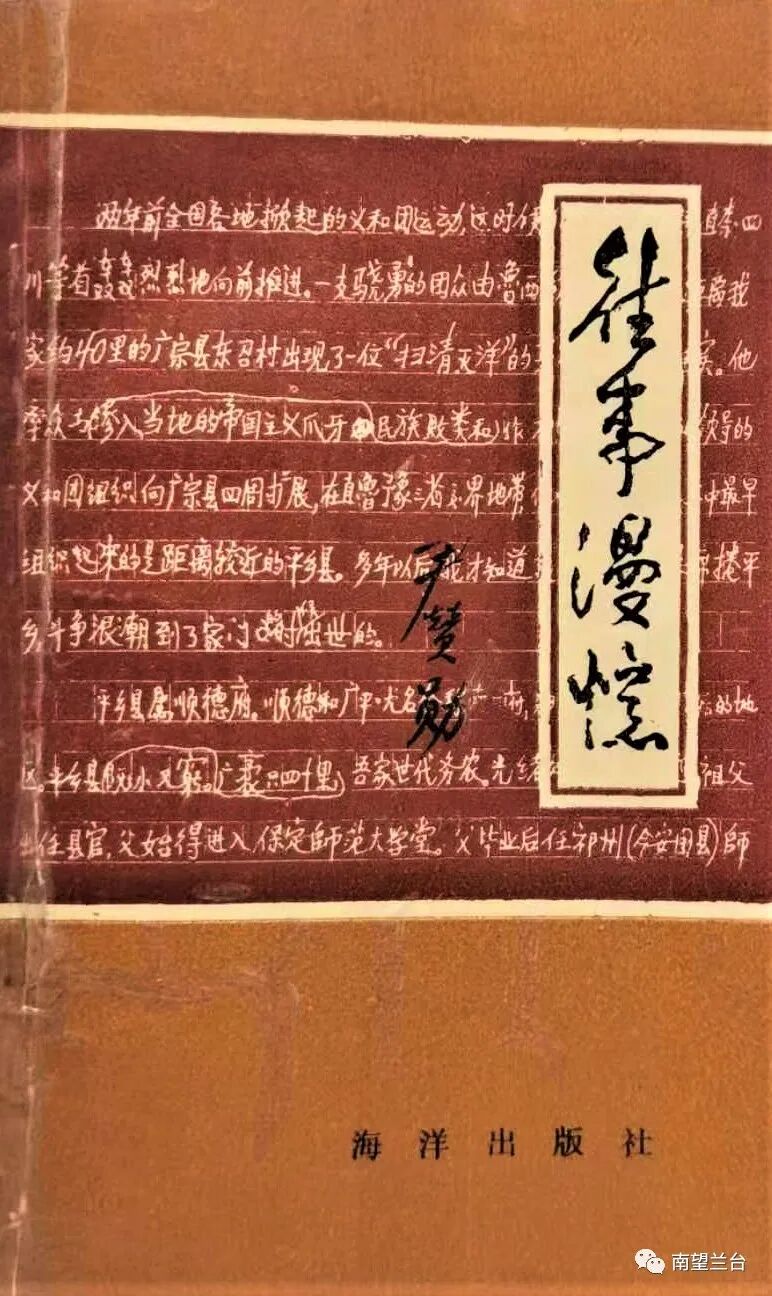 往事漫憶
尹赞勋
两年前全国各地掀起的义和团运动,这时使 直隶、四
川等省轰轰烈烈地向前推进。一支骁勇的团众由鲁西 距离我
家约40里的广宗县东召村出现了一位“扫清灭洋”的 。他
群众 掺入当地的帝国主义爪牙 民族败类和 作 领导的
义和团组织向广宗县四周扩展,在直鲁豫三省交界地带, 中最早
组织起来的是距离较近的平乡县。多年以后我才知道 席捲平
乡,斗争浪潮到了家门 时 世的。
平乡县属顺德府。顺德和广平、大名 的地
区。平乡县既小又穷。广袤只四十里, 吾家世代务农。光绪 祖父
出任县官,父始得进入保定师范大学堂。父毕业后任祁州(今安国县)師
海洋出版社
南望兰台